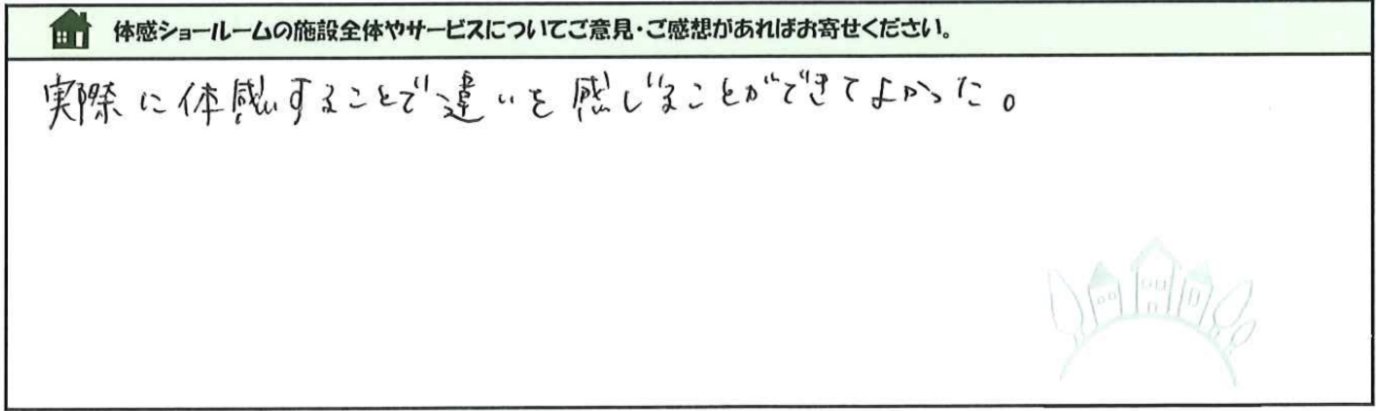 体感ショールームの施設全体やサービスについてご意見・ご感想があればお寄せください。
実際に体感することで違いを感じることができてよかった。